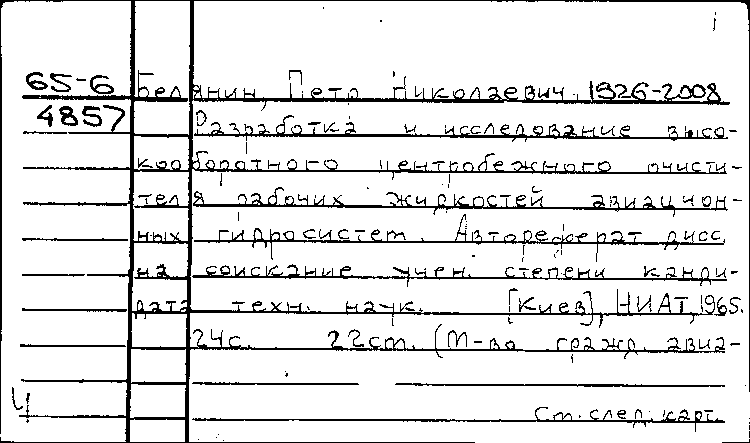 65-6 Белянин, Петр Николаевич. 1926-2008
4857 Разработка и исследование высо-
кооборотного центробежного очисти-
теля рабочих жидкостей авиацион-
ных гидросистем. Автореферат дисс.
на соискание учен. степени канди-
дата техн. наук. [Киев], НИАТ, 1965.
24с. 22см. (М-во гражд. авиа-
Ч См. след. карт.